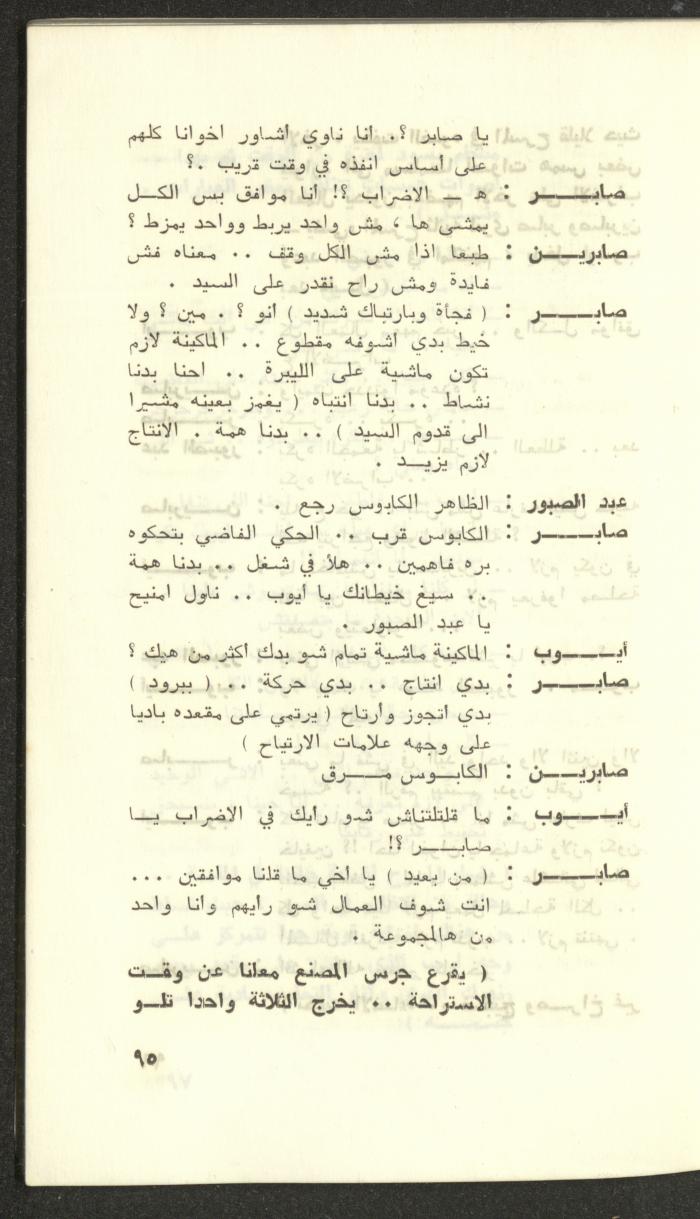 يا صابر ؟. أنا ناوي أشاور اخوانا كلهم
على أساس انفذه في وقت قريب .؟
صابــــــر : هـ ـــ الاضراب ؟! أنا موافق بس الكــل
يمشي ها ، مش واحد يربط وواحد يمزط ؟
صابريـــــن : طبعا اذا مش الكل وقف .. معناه فش
فايدة ومش راح نقدر على السيد .
صابــــــر : ( فجأة وبارتباك شديد ) انو ؟ . مين ؟ ولا
خيط بدي اشوفه مقطوع .. الماكينة لازم
تكون ماشية على الليبرة .. احنا بدنا
نشاط .. بدنا انتباه ( يغمز بعينه مشيرا
الى قدوم السيد ) .. بدنا همة . الانتاج
لازم يزيــد .
عبد الصبور : الظاهر الكابوس رجع .
صابــــــر : الكابوس قرب .. الحكي الفاضي بتحكوه
بره فاهمين .. هلأ في شغل .. بدنا همة
.. سيغ خيطانك يا أيوب .. ناول امنيح
يا عبد الصبور .
أيـــــوب : الماكينة ماشية تمام شو بدك أكثر من هيك ؟
صابــــــر : بدي انتاج .. بدي حركة .. ( ببرود )
بدي اتجوز وأرتاح ( يرتمي على مقعده باديا
على وجهه علامات الارتياح )
صابريـــــن : الكابـــوس مــــرق
أيـــــوب : ما قلتلتناش شو رأيك في الاضراب يــا
صابــــر ؟!
صابــــــر : ( من بعيد ) يا أخي ما قلنا موافقين ...
انت شوف العمال شو رايهم وأنا واحد
من هالمجموعة .
( يقرع جرس المصنع معلنا عن وقــت
الاستراحة .. يخرج الثلاثة واحدا تلــو
٩٥